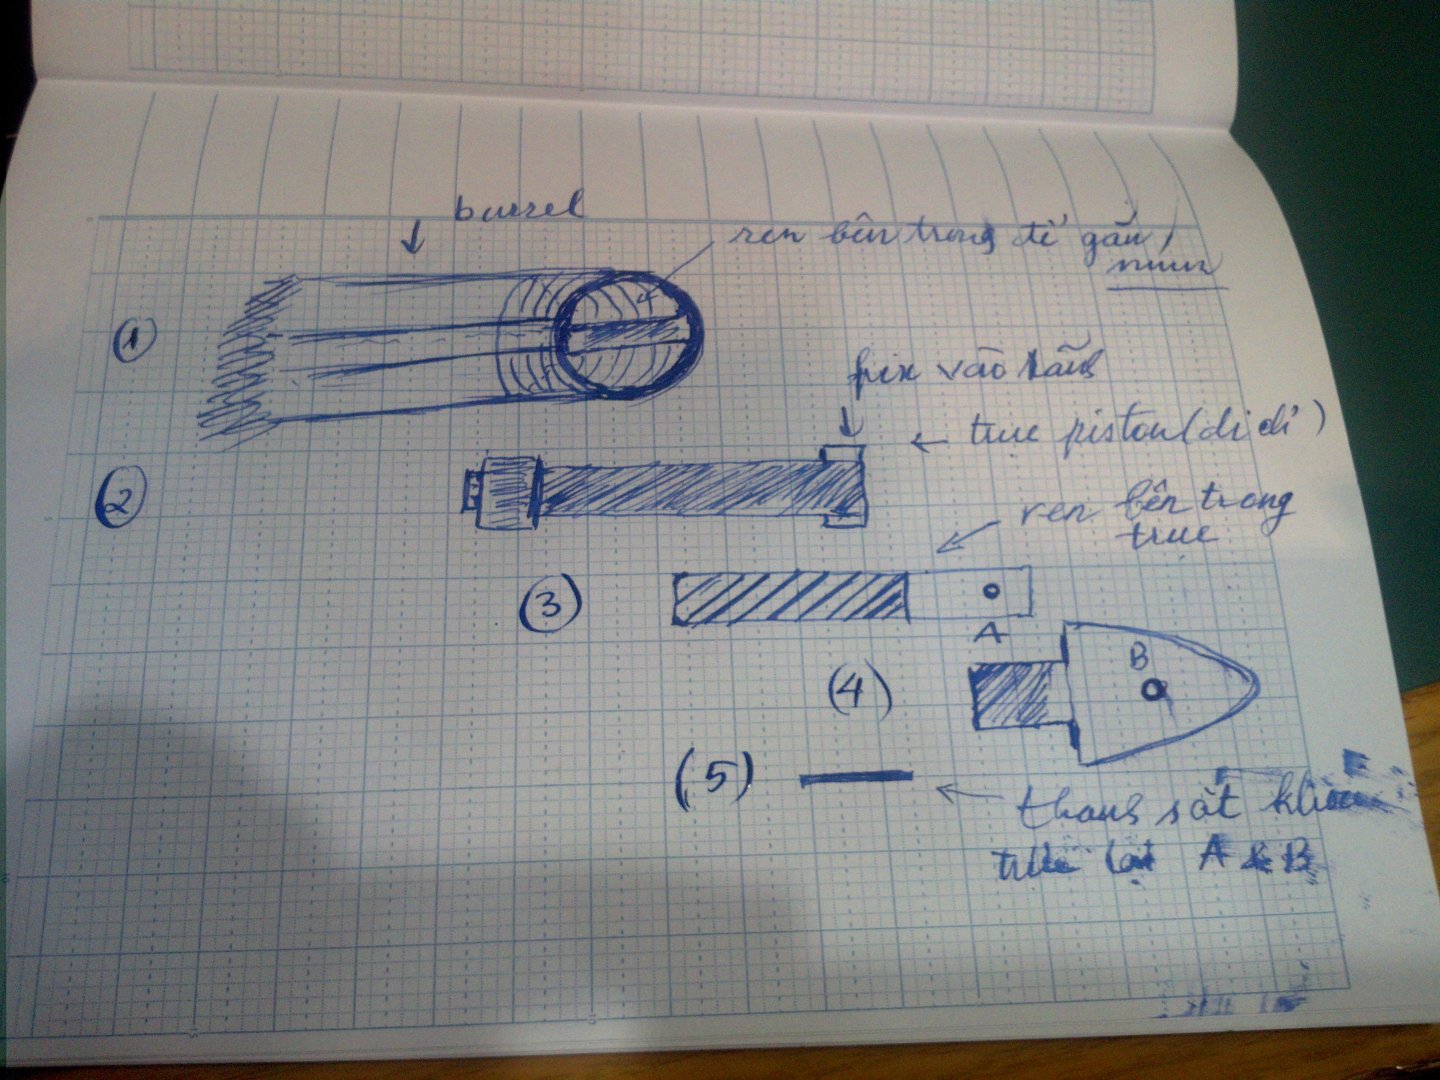 barrel
ren bên trong để gắn
(1)
fix vào rãnh
trục piston (di di)
(2)
ren bên trong
trục
(3)
A
B
(4)
(5)
thanh sắt
A & B